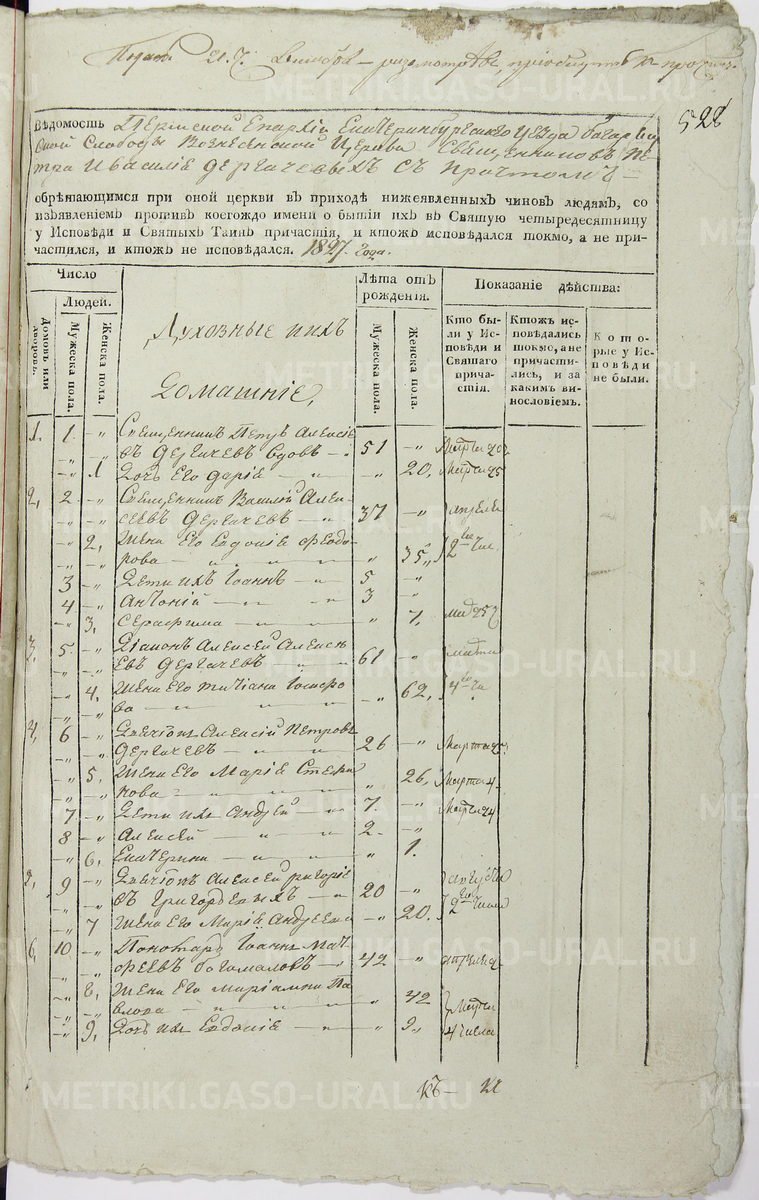 528
Вѣдомость Пермской Епархіи Екатеринбургскаго уезда багаряц
кой слободы Вознесенской Церкви Священниковъ Пе
тра и василіе дергачевыхъ съ причтомъ
обрѣтающимся при оной церкви въ приходѣ нижеявленныхъ чиновъ людямъ, со
изъявленіемъ противъ коегождо имени о бытіи ихъ въ Святую четыредесятницу
у Исповѣди и Святыхъ Таинъ причастія, и ктожъ исповѣдался токмо, а не при-
частился, и ктожъ не исповѣдался. 1827. Года.
Число
Людей.
Домовъ или дворовъ.
Мужеска пола.
Женска пола.
Духовные ихъ
домашніе,
Лѣта отъ рожденія.
Мужеска пола.
Женска пола.
Показаніе дѣйства:
Кто бы-
ли у Ис-
повѣди и
Святаго
прича-
стія.
Ктожъ ис-
повѣдались
токмо, а не
причасти-
лись, и за
какимъ ви-
нословіемъ.
Кото-
рые у Ис-
повѣди
не были.
1. 1. -"- Священникъ Петръ Алексіе
въ Дергачевъ вдовъ 51 -"-
-"- 1 Дочь Его дарія -"- 20, марта 25
2, 2 -"- Священникъ Василій Алек-
сеевъ Дергачевъ 37 -"- апреля
2, Жена Его Евдокіе Феодо-
рова 35, 2го чис
3 -"- Дети ихъ Іоаннъ 5 -"-
4 -"- Антоній 3 "
-"- 3, Серафима " 7, мар 25
3, 5. -"- Діаконъ Алексей Алексе
евъ Дергачевъ 61 -"- марта
4, Жена Его татіана Іосифо
ва " 62, 4го чи
4, 6 -"- Дьячокъ Алексій Петровъ
Дергачевъ 26 -"- Марта 25.
5, Жена Его Марія Стефа
нова " 26, Марта 4.
7 -"- Дети ихъ Андрей 7. -"- Марта 24
8 -"- Алексей 2. -"-
-"- 6, Екатерина " 1.
9 -"- Дьячокъ Алексей григоріе
въ Григорьевыхъ 20 -"- 2го числа
-"- 7 Жена Его Марія Андреева -"- 20.
6, 10 -"- Пономарь Іоаннъ Мат
феевъ богомоловъ 42 "
8, Жена Его Маріамна Па
влова " 42 Марта
-"- 9, Дочь ихъ Евдокіе " 9. 4 числа
METRIKI.GASO-URAL.RU